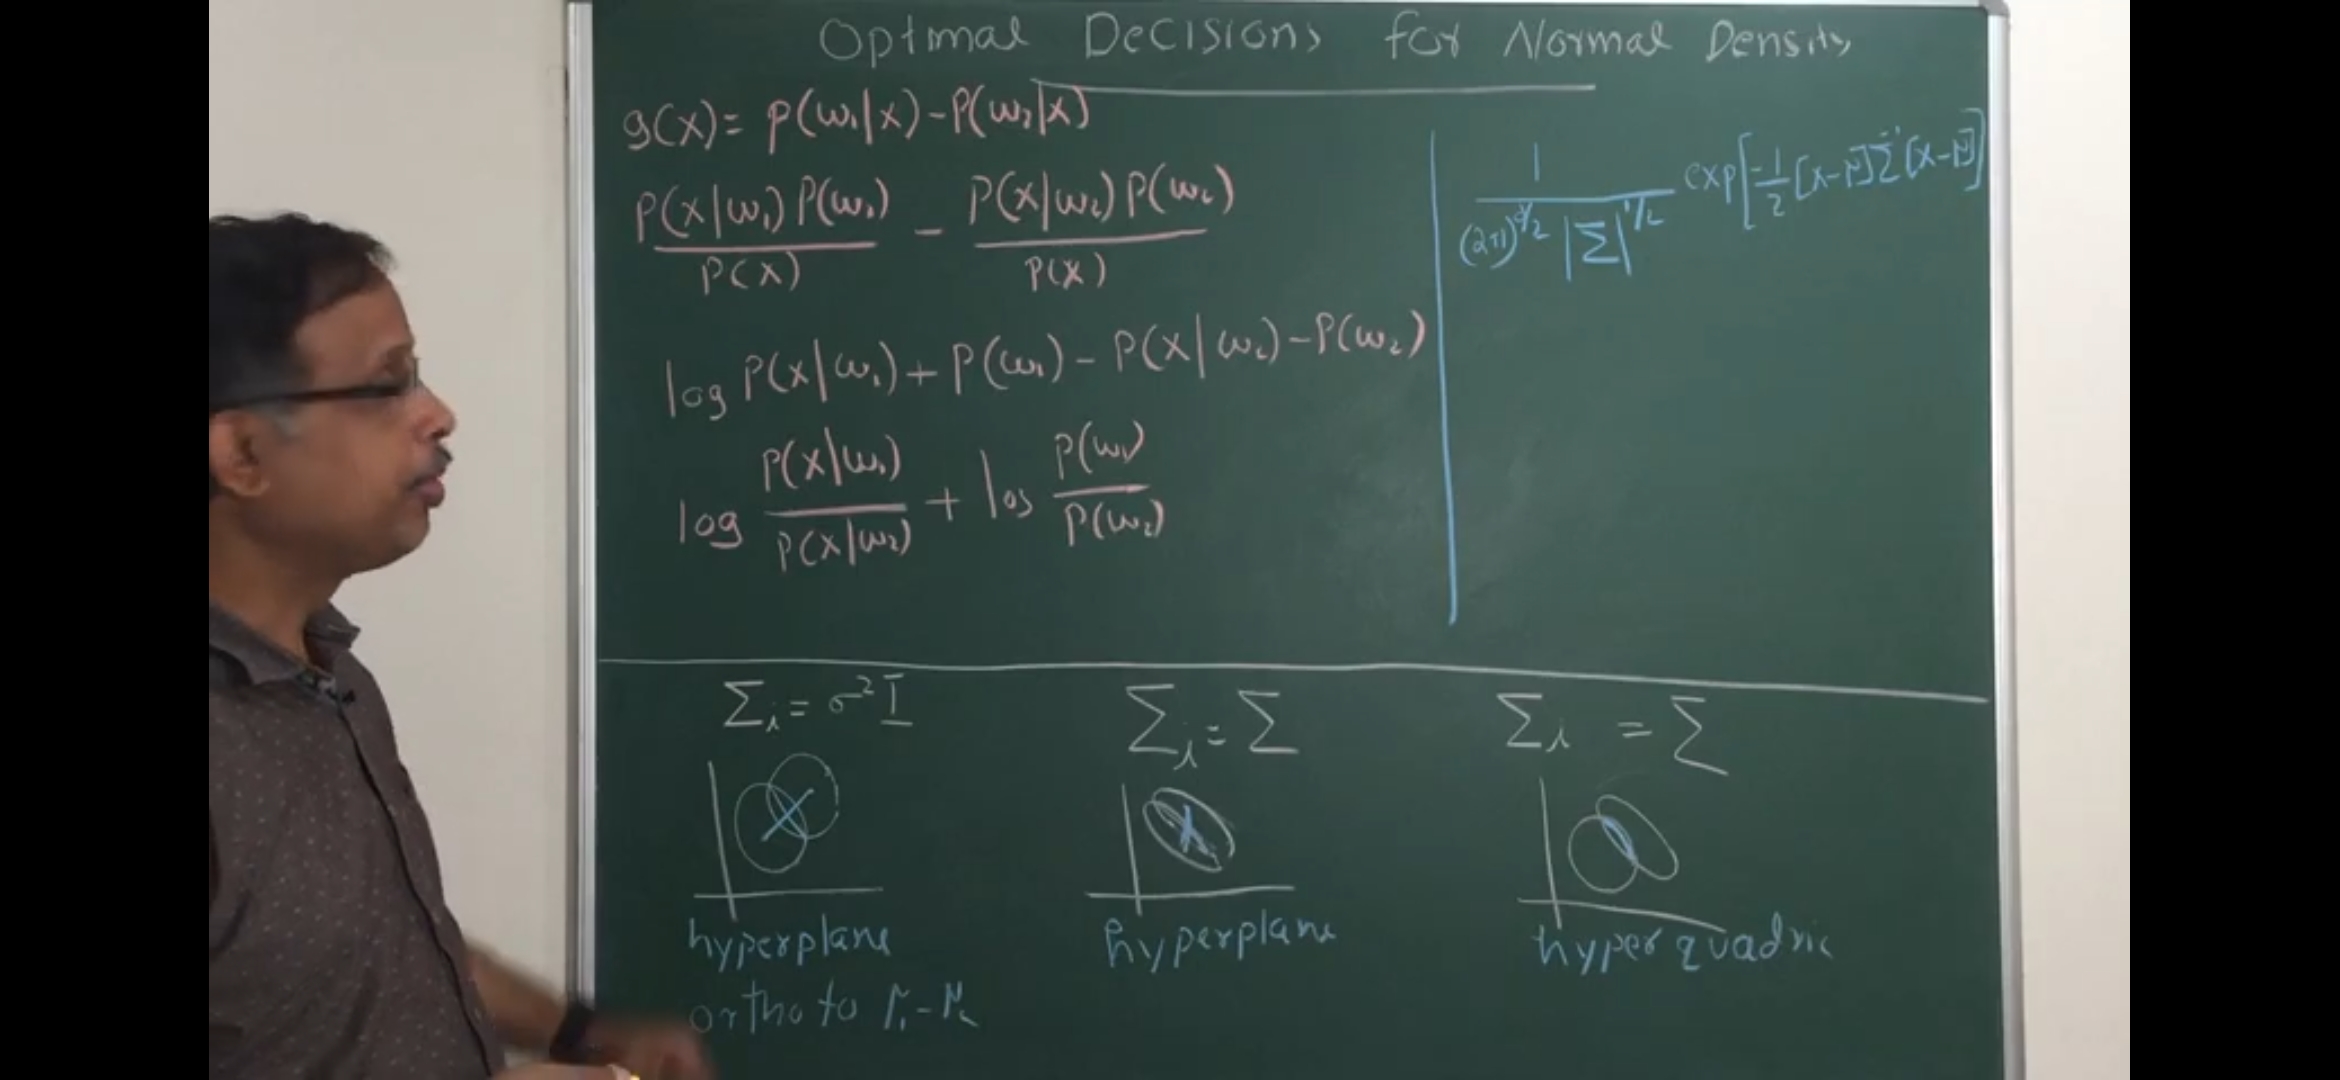 Optimal Decisions for Normal Density
g(x) = p(ω₁|x) - P(ω₂|x)
P(x|ω₁) P(ω₁) / P(x) - P(x|ω₂) P(ω₂) / P(x)
log P(x|ω₁) + P(ω₁) - P(x|ω₂) - P(ω₂)
log P(x|ω₁) / P(x|ω₂) + log P(ω₁) / P(ω₂)
1 / (2π)^(d/2) |Σ|^(1/2) exp[-1/2 [x-μ] Σ⁻¹ [x-μ]]
Σᵢ = σ² I
hyperplane
ortho to μ₁ - μ₂
Σᵢ = Σ
hyperplane
Σᵢ = Σ
hyper quadric